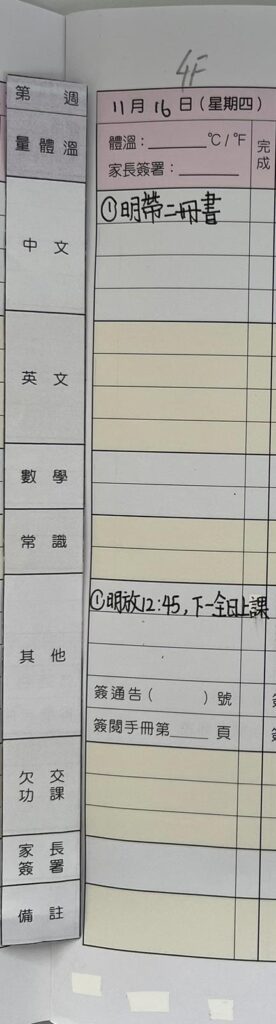 4F
第 週
11月16日(星期四)
量體溫
體溫:______°C/°F
家長簽署:
完成
中文
①明帶二冊書
英文
數學
常識
其他
①明放12:45,下一全日上課
簽通告( )號
簽閱手冊第____頁
欠交
功課
家長
簽署
備註